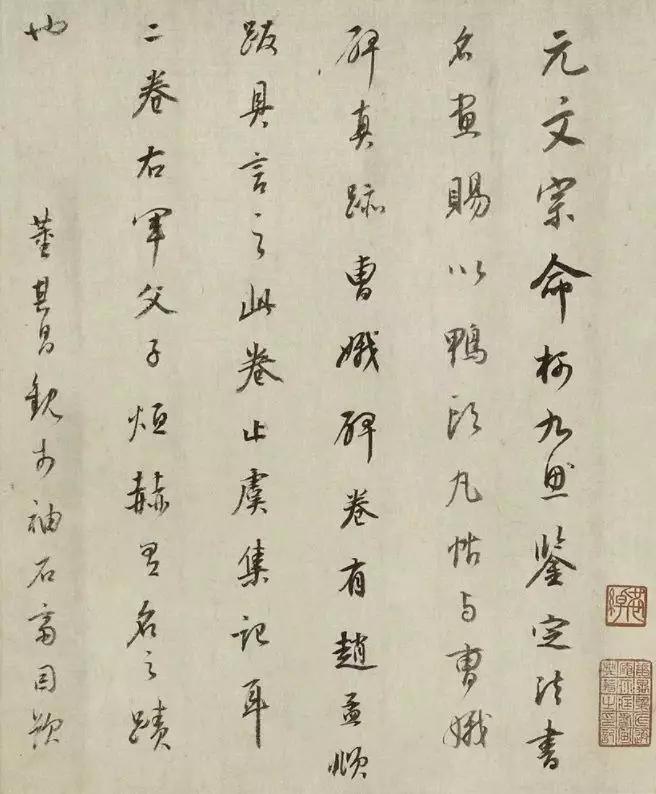 元文宗命柯九思鑒定法書
名畫賜以鴨頭丸帖与曹娥
碑真跡曹娥碑卷有趙孟頫
跋具言之此卷止虞集記耳
二卷右軍父子烜赫有名之蹟
也
董其昌觀於袖石齋因題